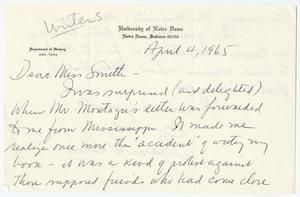 Writers
University of Notre Dame
Notre Dame, Indiana 46556
Department of History
April 4, 1965
Dear Miss Smith –
I was surprised (and delighted)
when Mr. Montagu's letter was forwarded
to me from Mississippi. It made me
realize once more the "accident" of writing my
book – it was a kind of protest against
those supposed friends who had come close